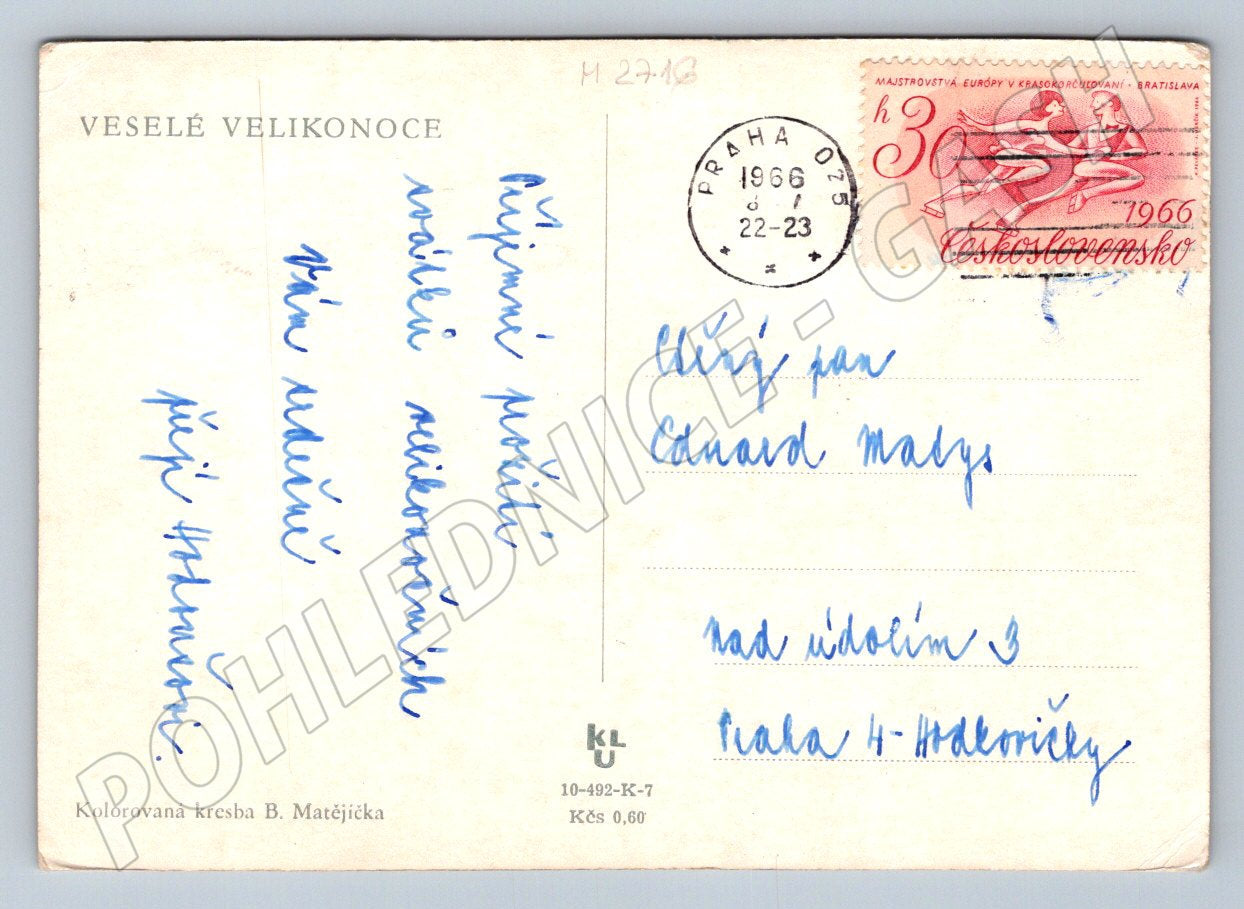 M 2716
VESELÉ VELIKONOCE
MAJSTROVSTVÁ EURÓPY V KRASOKORČUĽOVANÍ · BRATISLAVA
h 30
1966
Československo
PRAHA 025
1966
22-23
Příjemné prožití
svátků velikonočních
Vám srdečně
přejí Hodravovi.
Ctěný pan
Eduard Matys
Nad údolím 3
Praha 4-Hodkovičky
KLU
10-492-K-7
Kčs 0,60
Kolorovaná kresba B. Matějíčka
POHLEDNICE - GASH